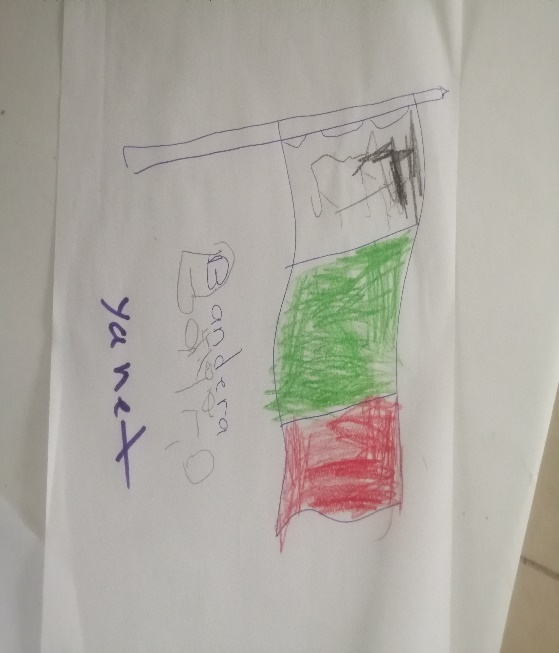 Bandera
yanet